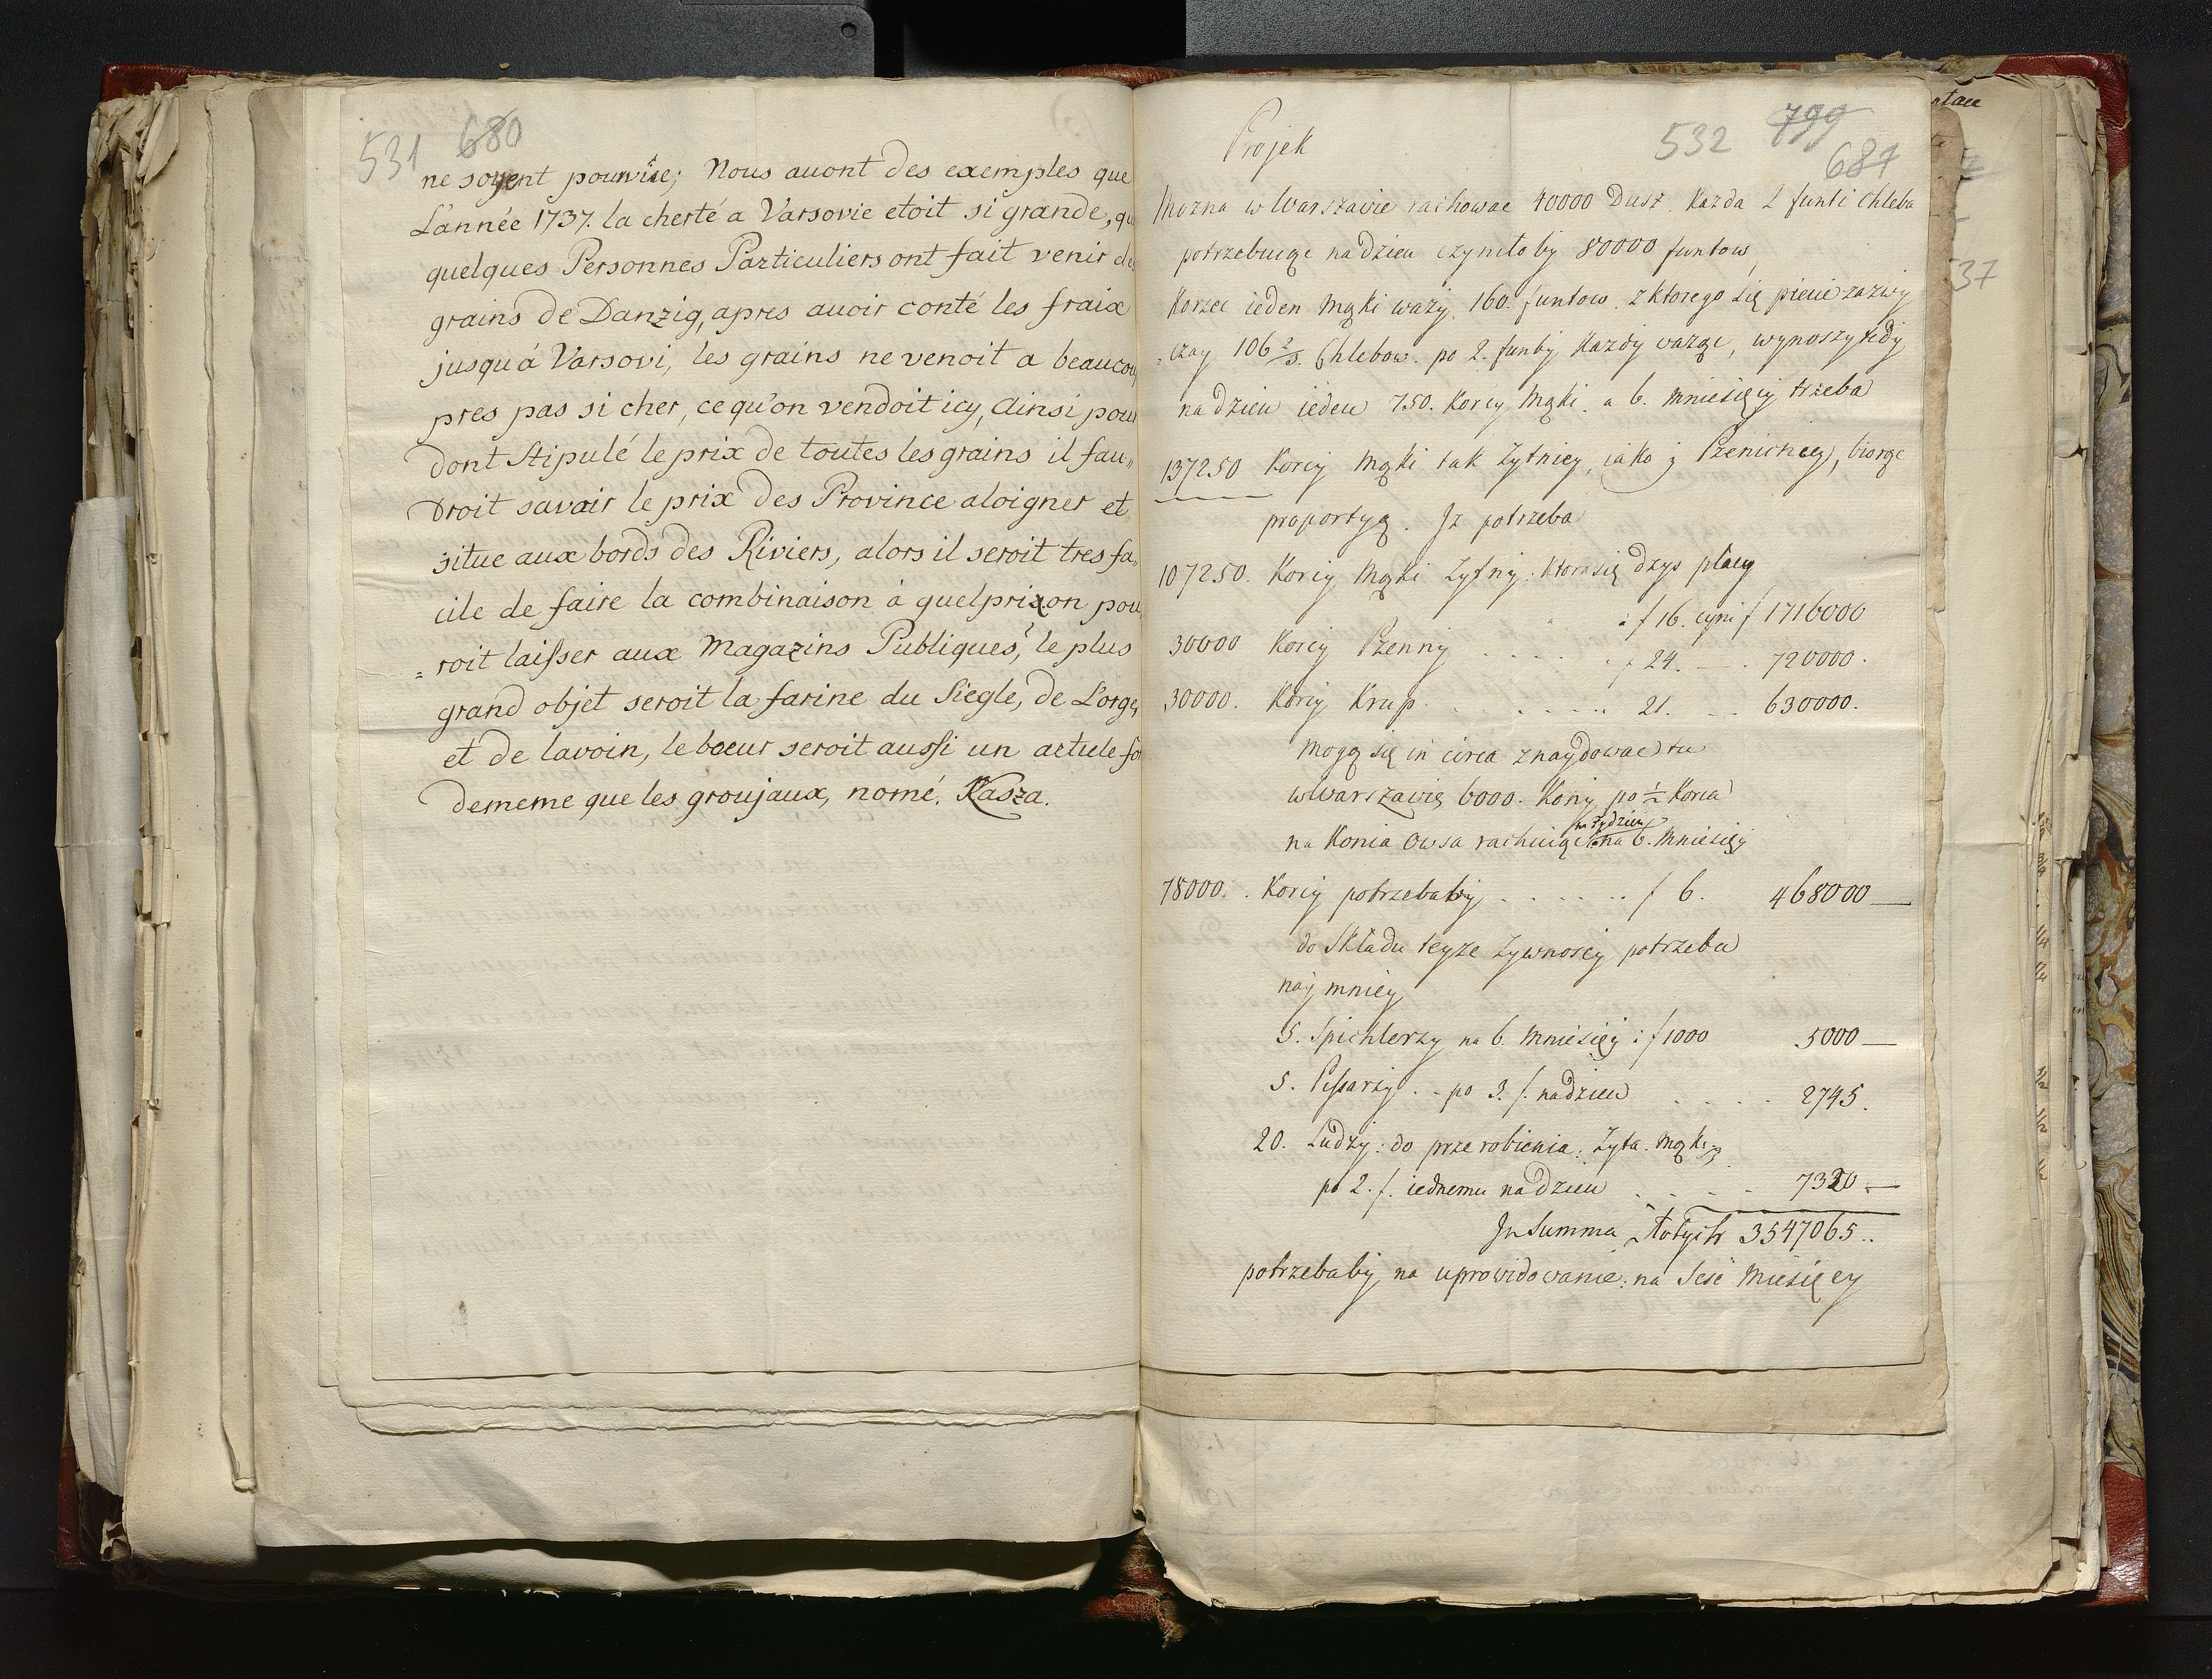 531 680
ne soyent pourvûe; Nous avont des exemples que
L'année 1737. la cherté a Varsovie etoit si grande, qu
quelques Personnes Particuliers ont fait venir de
grains de Danzig, apres avoir conté les fraix
jusqu'á Varsovi, les grains ne venoit a beaucou
pres pas si cher, ce qu'on vendoit icy, Ainsi pour
dont Stipulé le prix de toutes les grains il fau„
Droit savoir le prix des Province aloigner et
situe aux bords des Riviers, alors il seroit tres fa„
cile de faire la combinaison à quel prix on pou
= roit laisser aux Magazins Publiques, le plus
grand objet seroit la farine du Siegle, de L'orge,
et de lavoin, le bœur seroit aussi un article fo
dememe que les groujaux, nomé. Kasza.
Projek
532 799
687
Mozna w Warszawie rachowac 40000 Dusz. Kazda 2 funti chleba
potrzebuiąc na dzien czyniło by 80000 funtow
Korzec ieden Mąki wazy. 160. funtow. z ktorego się piecie zazwy
= czay 106 2/3. Chlebow. po 2. funty Kazdy vaząc, wynoszy tedy
na dzien ieden 750. Korcy Mąki. a 6. Mniesięcy trzeba
137250 Korcy Mąki tak Zytniey, iako y Pzeniczney, biorąc
proportyą. Jz potrzeba
107250. Korcy Mąki Zytny: Ktora się dzys płacy
: f 16. cyni f 1716000
30000 Korcy Pzenny . . . . f 24. — . 720000.
30000. Korcy Krup . . . . . . 21. — 630000.
Mogą się in circa znaydowac tu
w Warszawię 6000. Kony po 1/2 Korca
na tydzien
na Konia Owsa rachuiąc na 6. Mniesięy
78000. . Korcy potrzebaby . . . . . . f 6. 468000 —
do Składu teyze Zywnoscy potrzeba
nay mniey
5. Spichlerzy na 6. Mniesięy : f 1000 5000 —
5. Pissarzy . . po 3. f. na dzien . . . . 2745.
20. Ludzy: do przerobienia: Zyta. Mąki
po 2. f. iednemu na dzien . . . . 7320. —
In Summa Złotych 3547065..
potrzebaby na uprowidowanie: na Sesc Miesięcy
37